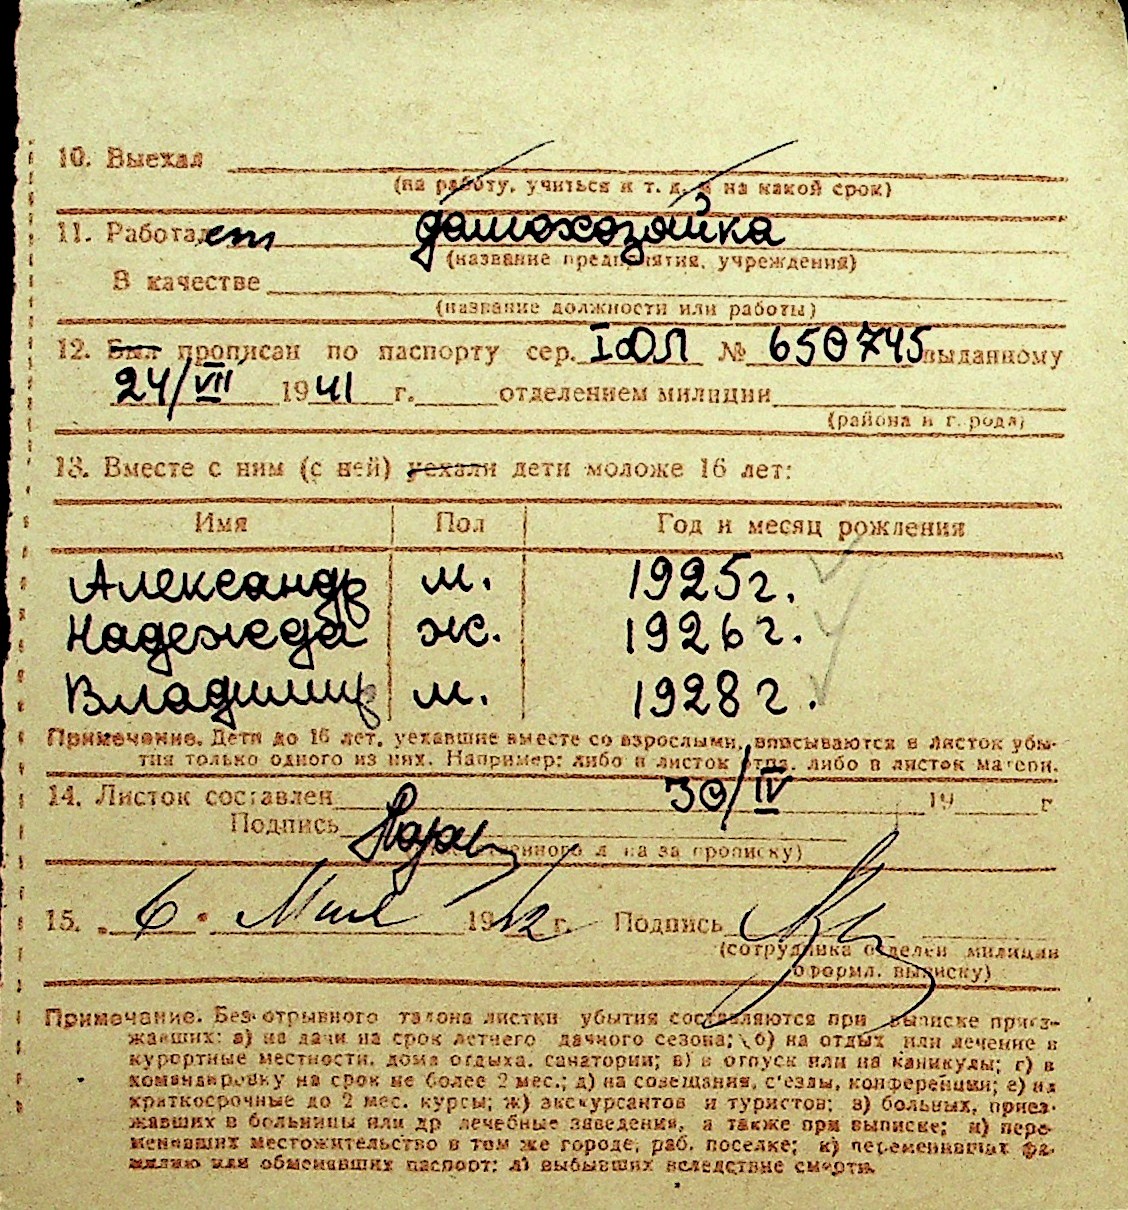 10. Выехал
(на работу, учиться и т. д. и на какой срок)
11. Работает домохозяйка
(название предприятия, учреждения)
В качестве
(название должности или работы)
12. Был прописан по паспорту сер. № 650745 выданному
24/VII 1941 г. отделением милиции
(района и города)
13. Вместе с ним (с ней) уехали дети моложе 16 лет:
Имя Пол Год и месяц рождения
Александр м. 1925 г.
Надежда ж. 1926 г.
Владимир м. 1928 г.
Примечание. Дети до 16 лет, уехавшие вместе со взрослыми, вписываются в листок убы-
тия только одного из них. Например: либо в листок отца, либо в листок матери.
14. Листок составлен 30/IV 19 г
Подпись
(ответственного лица за прописку)
15. „ 6 " Мая 1942 г. Подпись
(сотрудника отделен милиции
оформл. выписку)
Примечание. Без отрывного талона листки убытия составляются при выписке приез-
жавших: а) на дачи на срок летнего дачного сезона; б) на отдых или лечение в
курортные местности, дома отдыха, санатории; в) в отпуск или на каникулы; г) в
командировку на срок не более 2 мес.; д) на совещания, с'езды, конференции; е) на
краткосрочные до 2 мес. курсы; ж) экскурсантов и туристов; з) больных, приез-
жавших в больницы или др лечебные заведения, а также при выписке; и) пере-
менивших местожительство в том же городе, раб. поселке; к) переменивших фа-
милию или обменявших паспорт; л) выбывших вследствие смерти.